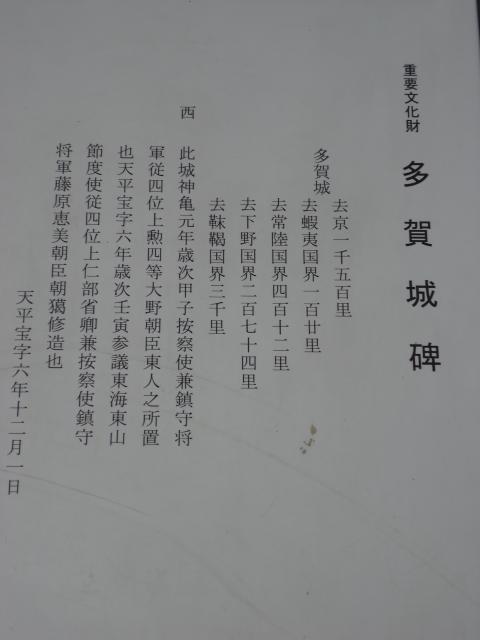 重要文化財 多賀城碑
去京一千五百里
多賀城 去蝦夷国界一百廿里
去常陸国界四百十二里
去下野国界二百七十四里
去靺鞨国界三千里
西 此城神亀元年歳次甲子按察使兼鎮守将
軍従四位上勲四等大野朝臣東人之所置
也天平宝字六年歳次壬寅参議東海東山
節度使従四位上仁部省卿兼按察使鎮守
将軍藤原恵美朝臣朝獦修造也
天平宝字六年十二月一日